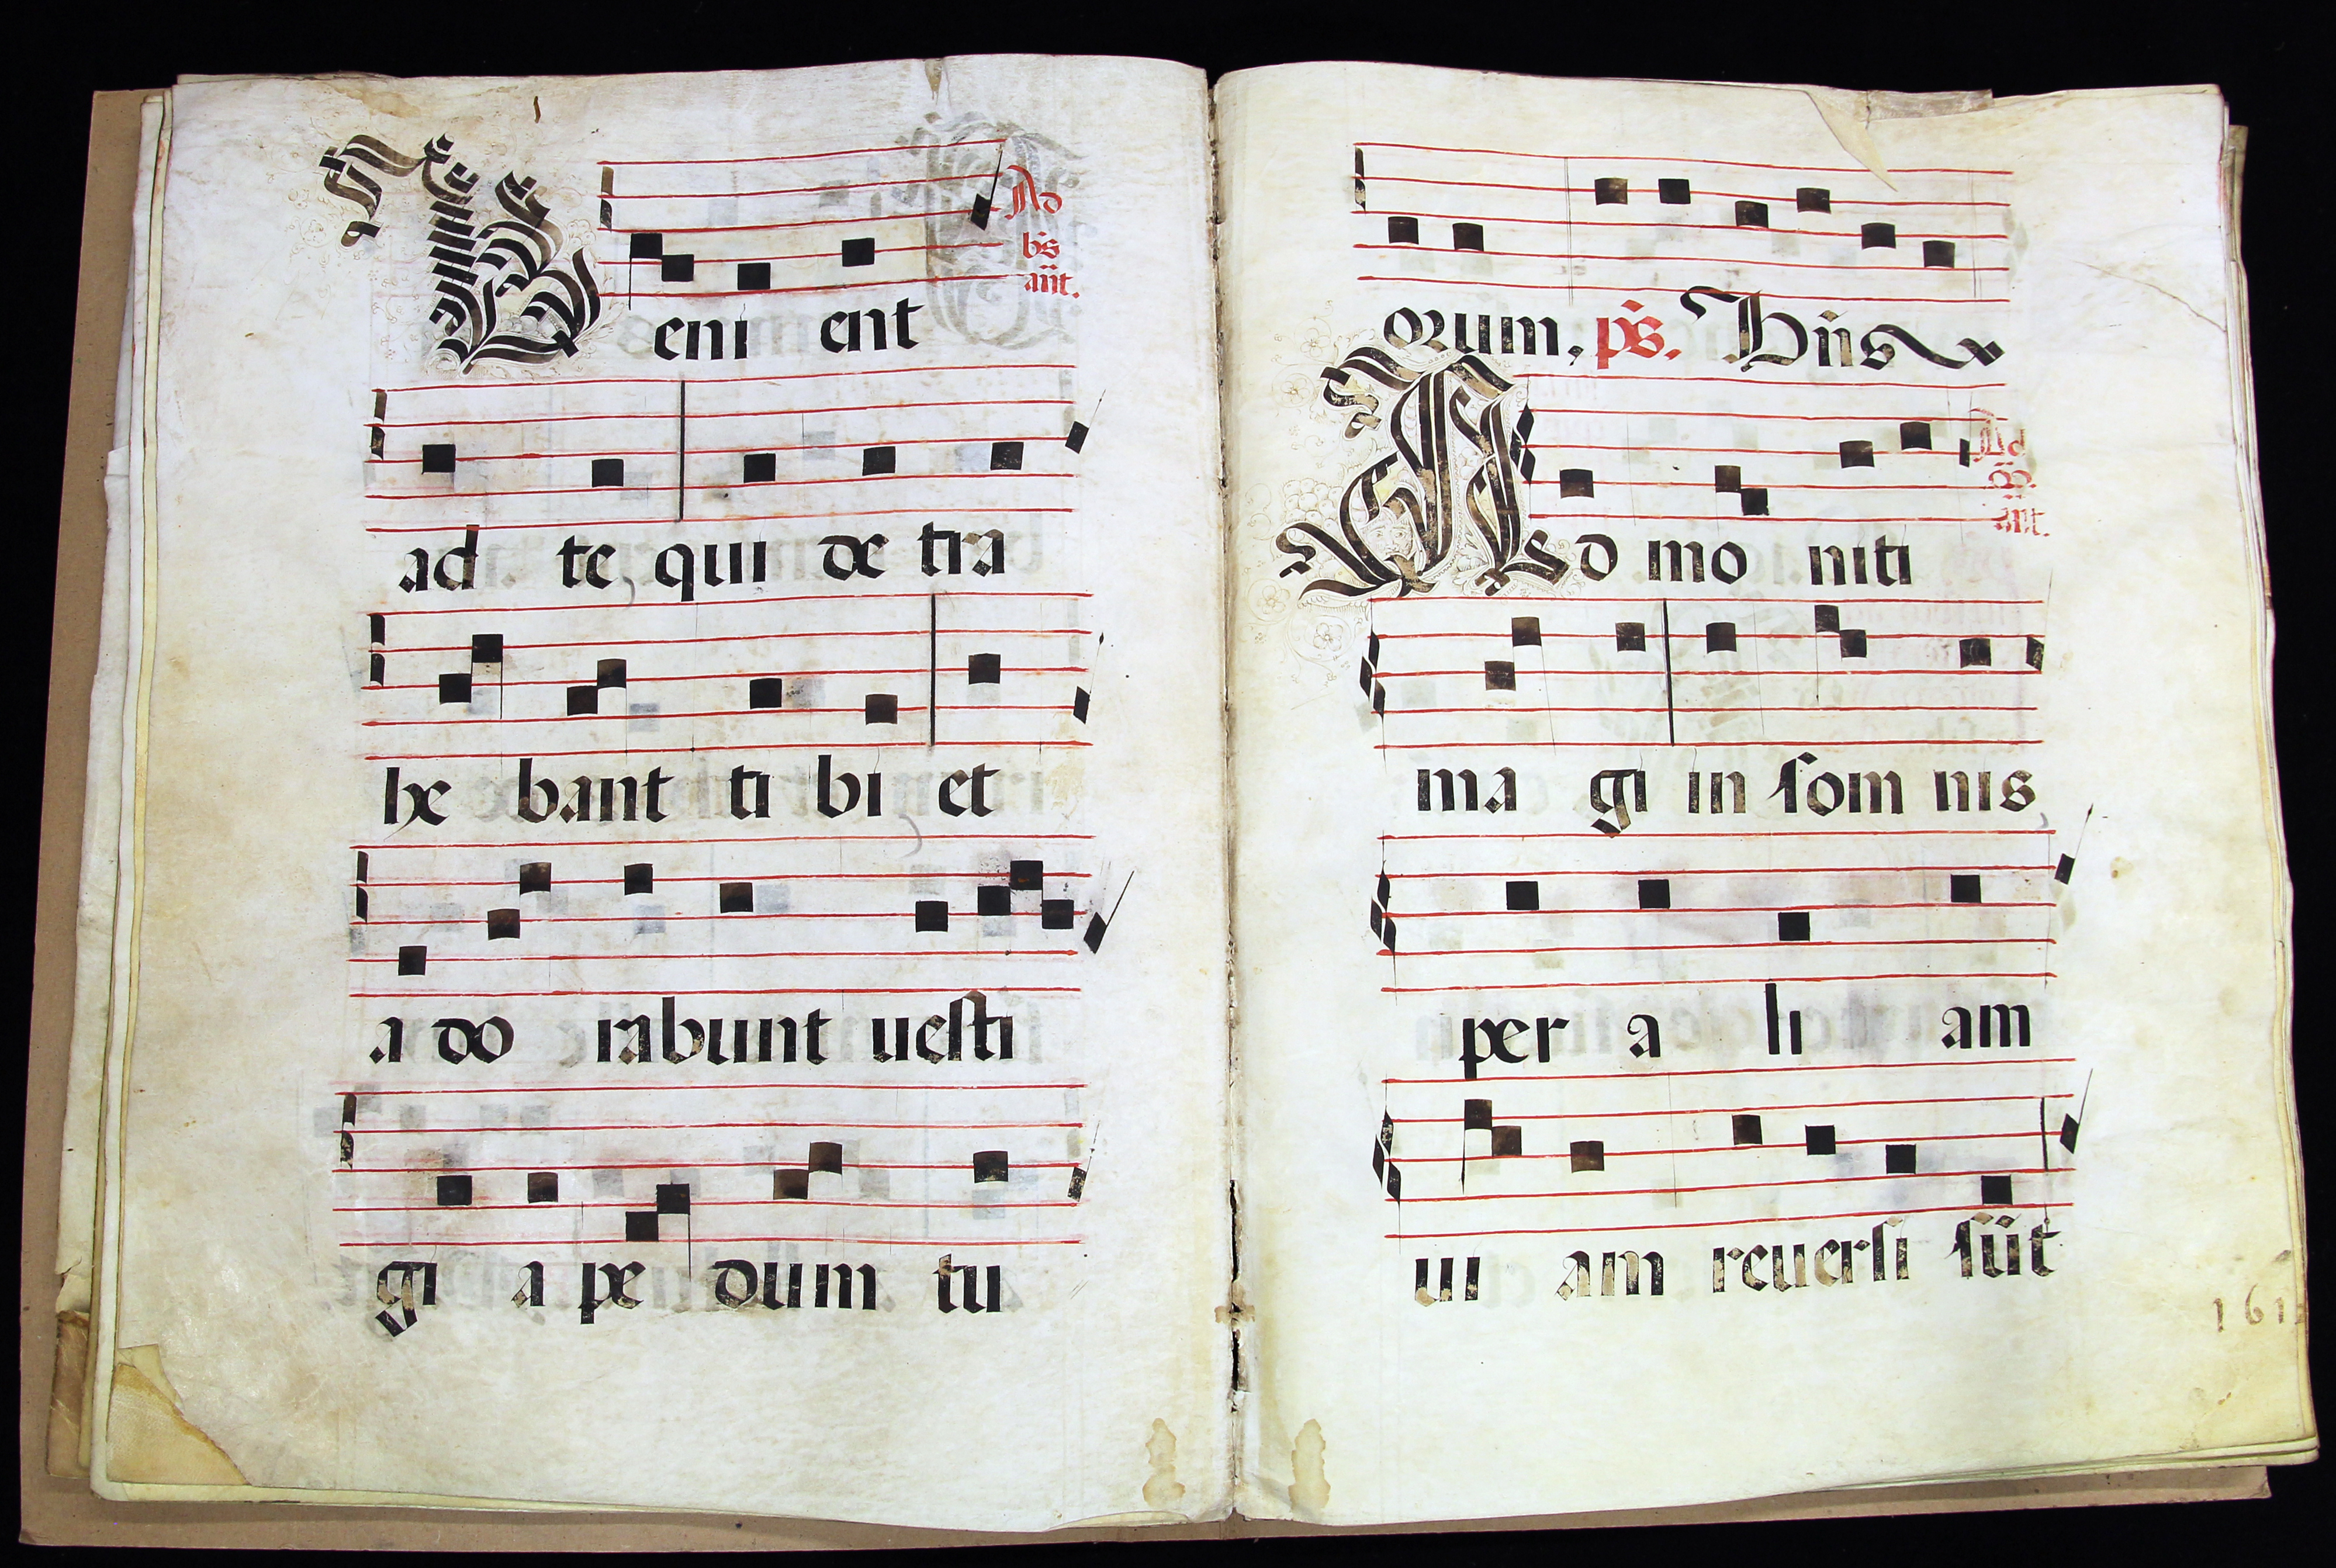 Veni ent
Ad
bs
añt.
ad te, qui de tra
he bant ti bi et
a do rabunt uesti
gi a pe dum tu
orum, ps. Bñs
Ad mo niti
Ad
añt.
ma gi in som nis,
per a li am
ui am reuersi sūt
161